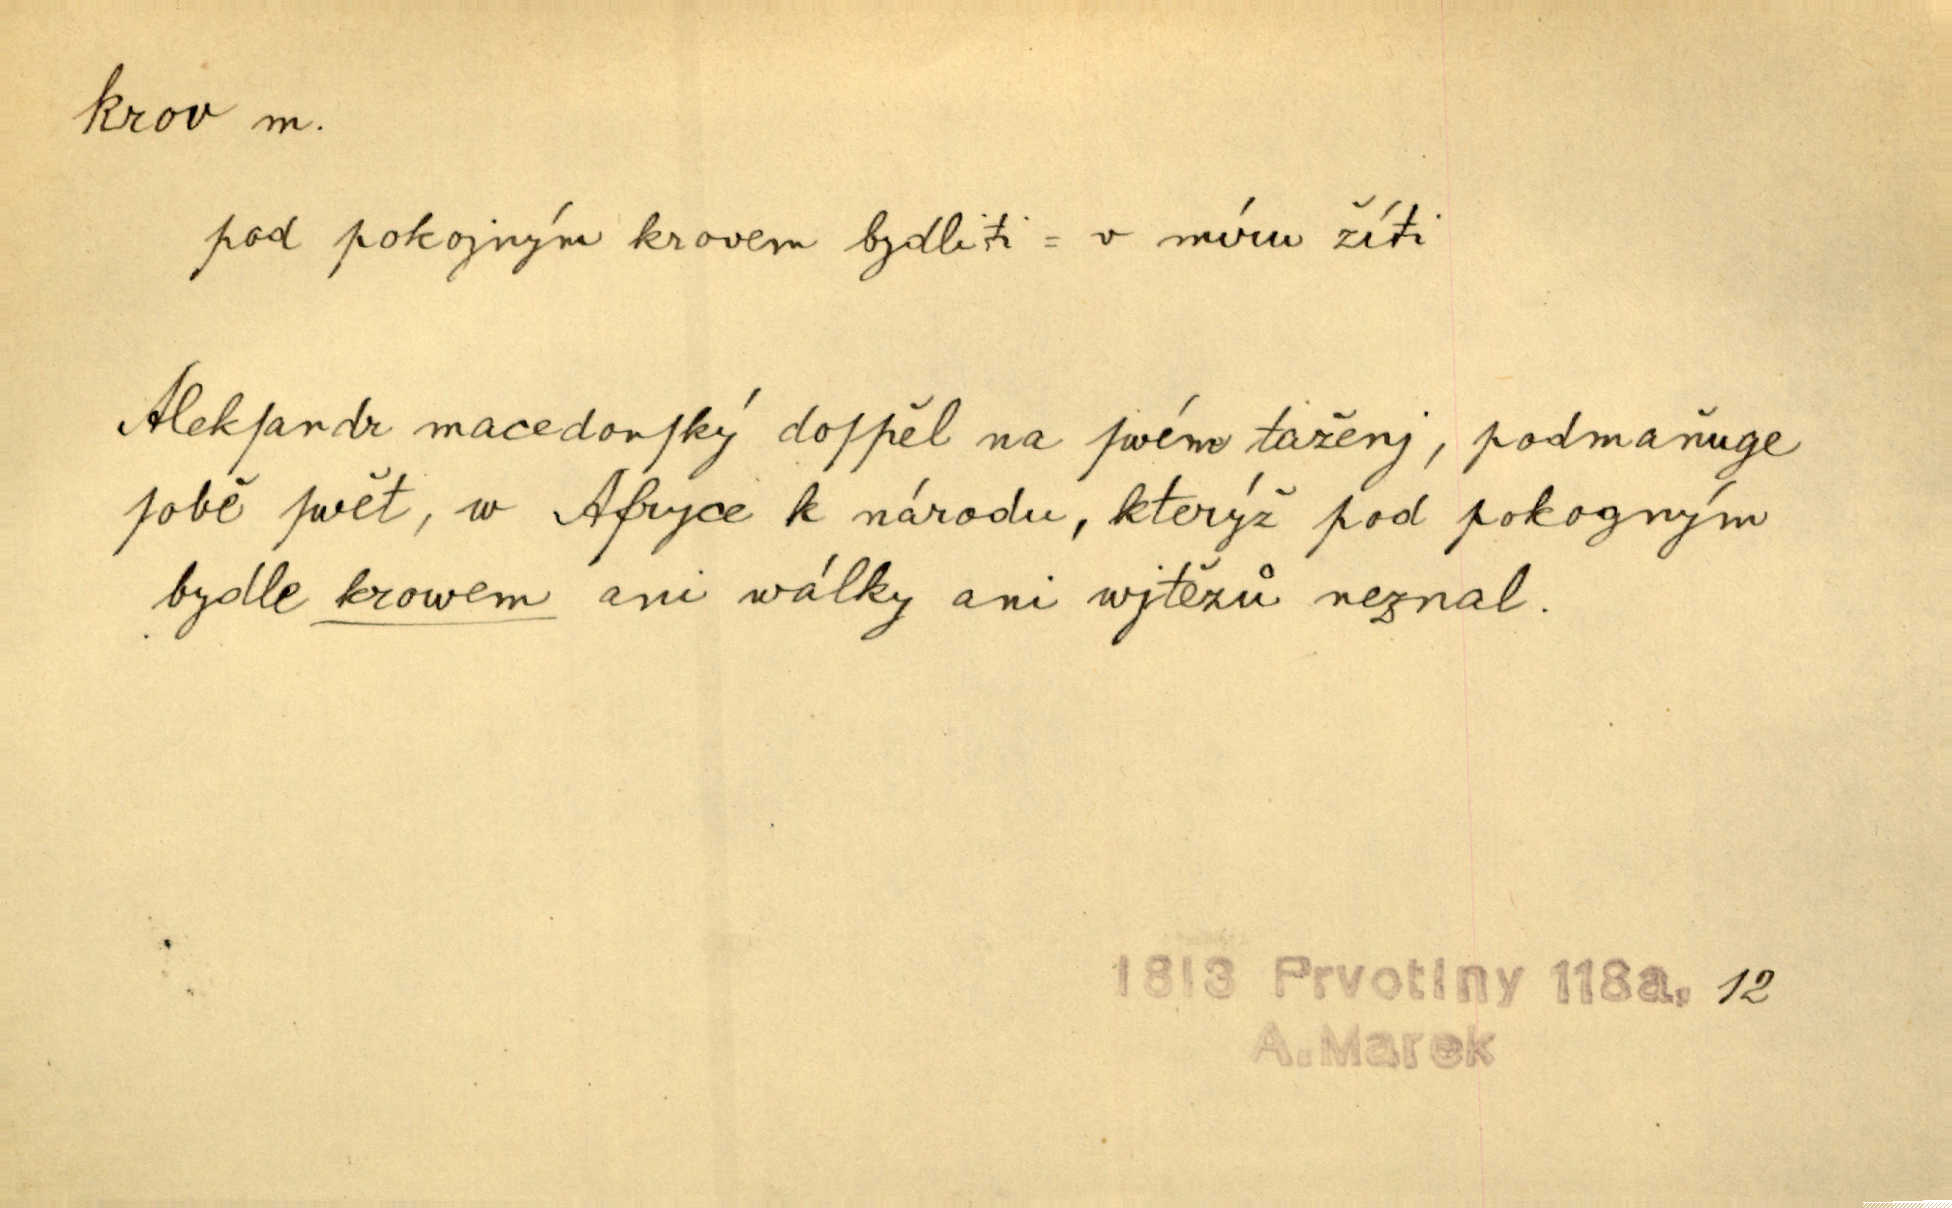 krov m.
pod pokojným krovem bydliti = v míru žíti
Alekſandr macedonſký doſpěl na ſwém taženj, podmaňuge
ſobě ſwět, w Afryce k národu, kterýž pod pokogným
bydle krowem ani wálky ani wjtězů neznal.
1813 Prvotiny 118a. 12
A. Marek